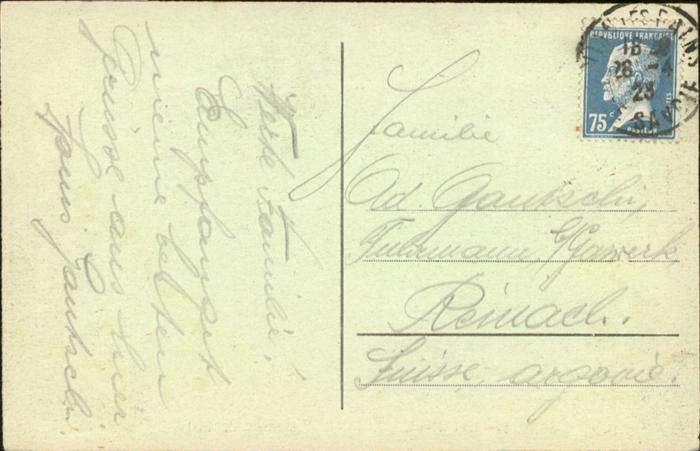 Werte Familie!
Empfanget
meine besten
Grüsse aus hier
Louis Gautschi
REPVBLIQVE FRANÇAISE
75c
LES BAINS
28 -
23
SAVOIE
Familie
Ad. Gautschi,
Fuhrmann Gaswerk
Reinach.
Suisse, argovie.